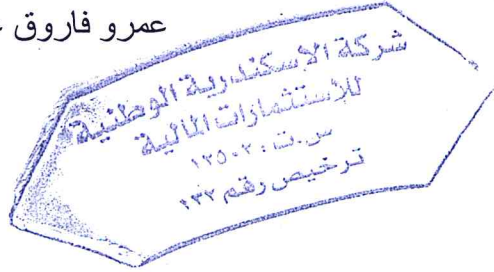 عمرو فاروق
شركة الاسكندرية الوطنية
للاستثمارات المالية
س.ت: ١٢٥٠٢
ترخيص رقم ١٣٢